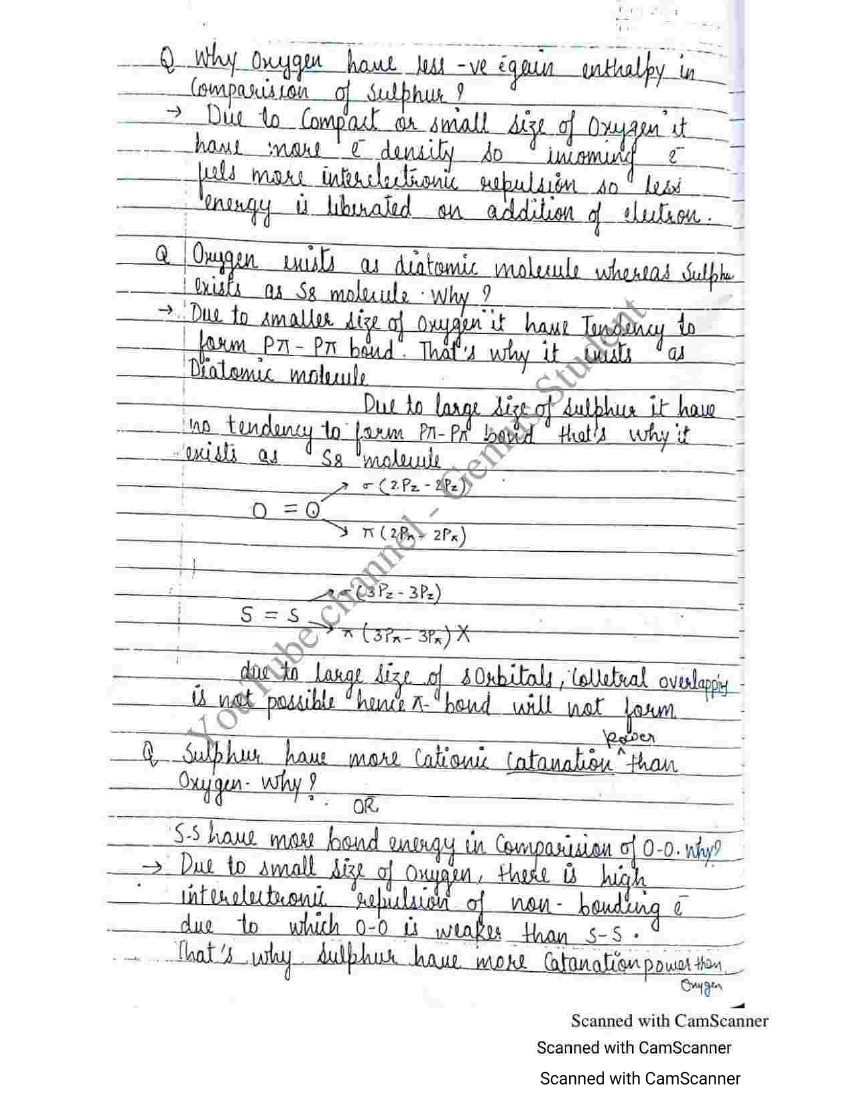 Q Why Oxygen have less -ve egain enthalpy in
Comparision of Sulphur?
→ Due to Compact or small size of Oxygen it
have more e̅ density so incoming e̅
feels more interelectronic repulsion so less
energy is liberated on addition of electron.
Q Oxygen exists as diatomic molecule whereas Sulphu
exists as S8 molecule. Why?
→ Due to smaller size of Oxygen it have Tendency to
form Pπ-Pπ bond. That's why it exists as
Diatomic molecule
Due to large size of sulphur it have
no tendency to form Pπ-Pπ bond that's why it
exists as S8 molecule
σ (2Pz - 2Pz)
O = O
π (2Px - 2Px)
σ (3Pz - 3Pz)
S = S
π (3Px - 3Px) X
due to large size of sOrbitals, Colletral overlapping
is not possible hence π- bond will not form
power
Q Sulphur have more Cationic Catanation ^ than
Oxygen. Why?
OR
S-S have more bond energy in Comparision of O-O. Why?
→ Due to small size of Oxygen, there is high
interelectronic repulsion of non-bonding e̅
due to which O-O is weaker than S-S.
That's why Sulphur have more Catanation power then
Oxygen
YouTube channel - Genius Student
Scanned with CamScanner
Scanned with CamScanner
Scanned with CamScanner